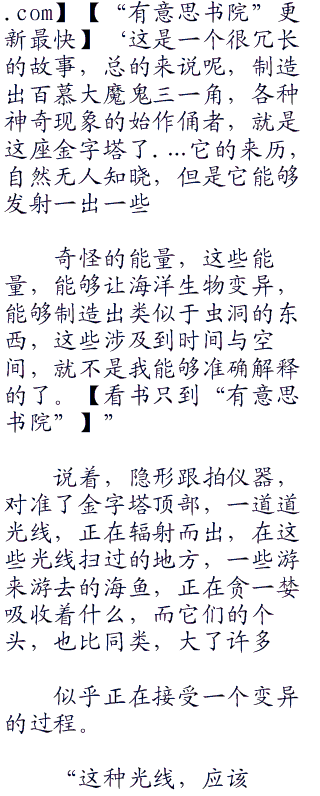 .com】【“有意思书院”更
新最快】‘这是一个很冗长
的故事，总的来说呢，制造
出百慕大魔鬼三一角，各种
神奇现象的始作俑者，就是
这座金字塔了....它的来历，
自然无人知晓，但是它能够
发射一出一些
奇怪的能量，这些能
量，能够让海洋生物变异，
能够制造出类似于虫洞的东
西，这些涉及到时间与空
间，就不是我能够准确解释
的了。【看书只到“有意思
书院”】”
说着，隐形跟拍仪器，
对准了金字塔顶部，一道道
光线，正在辐射而出，在这
些光线扫过的地方，一些游
来游去的海鱼，正在贪一婪
吸收着什么，而它们的个
头，也比同类，大了许多
似乎正在接受一个变异
的过程。
“这种光线，应该